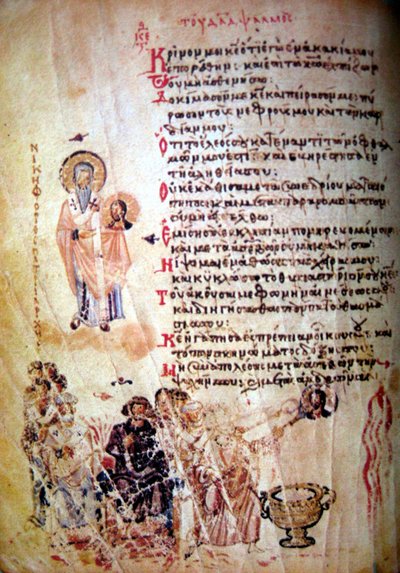 ΤΟΥ ΔΑΔ ΨΑΛΜΟΣ
Κρῖνόν με κε ὅτι ἐγὼ ἐν ἀκακία μου
ἐπορεύθην· καὶ ἐπὶ τῶ κω ἐλπίζων
οὐ μὴ ἀσθενήσω:
Δοκίμασόν με κε καὶ πείρασόν με· πύ
ρωσον τοὺς νεφρούς μου καὶ τὴν καρ
δίαν μου:
Ὅτι τὸ ἔλεός σου κατέναντι τῶν ὀφθαλ
μῶν μου ἐστι· καὶ εὐηρέστησα ἐν
τῆ ἀληθεία σου:
Οὐκ ἐκάθισα μετὰ συνεδρίου ματαιό
τητος καὶ μετὰ παρανομούν
των οὐ μὴ εἰσέλθω:
Ἐμίσησα ἐκκλησίαν πονηρευομένων
καὶ μετὰ ἀσεβῶν οὐ μὴ καθίσω:
Νίψομαι ἐν ἀθώοις τὰς χεῖράς μου
καὶ κυκλώσω τὸ θυσιαστήριόν σου κε
Τοῦ ἀκοῦσαί με φωνῆς αἰνέσεώς σου
καὶ διηγήσασθαι πάντα τὰ θαυμά
σιά σου:
Κε ἠγάπησα εὐπρέπειαν οἴκου σου καὶ
τόπον σκηνώματος δόξης σου:
Μὴ συναπολέσης μετὰ ἀσεβῶν τὴν
ψυχήν μου
ΝΙΚΗΦΟΡΟΣ ΠΑΤΡΙΑΡΧΗΣ